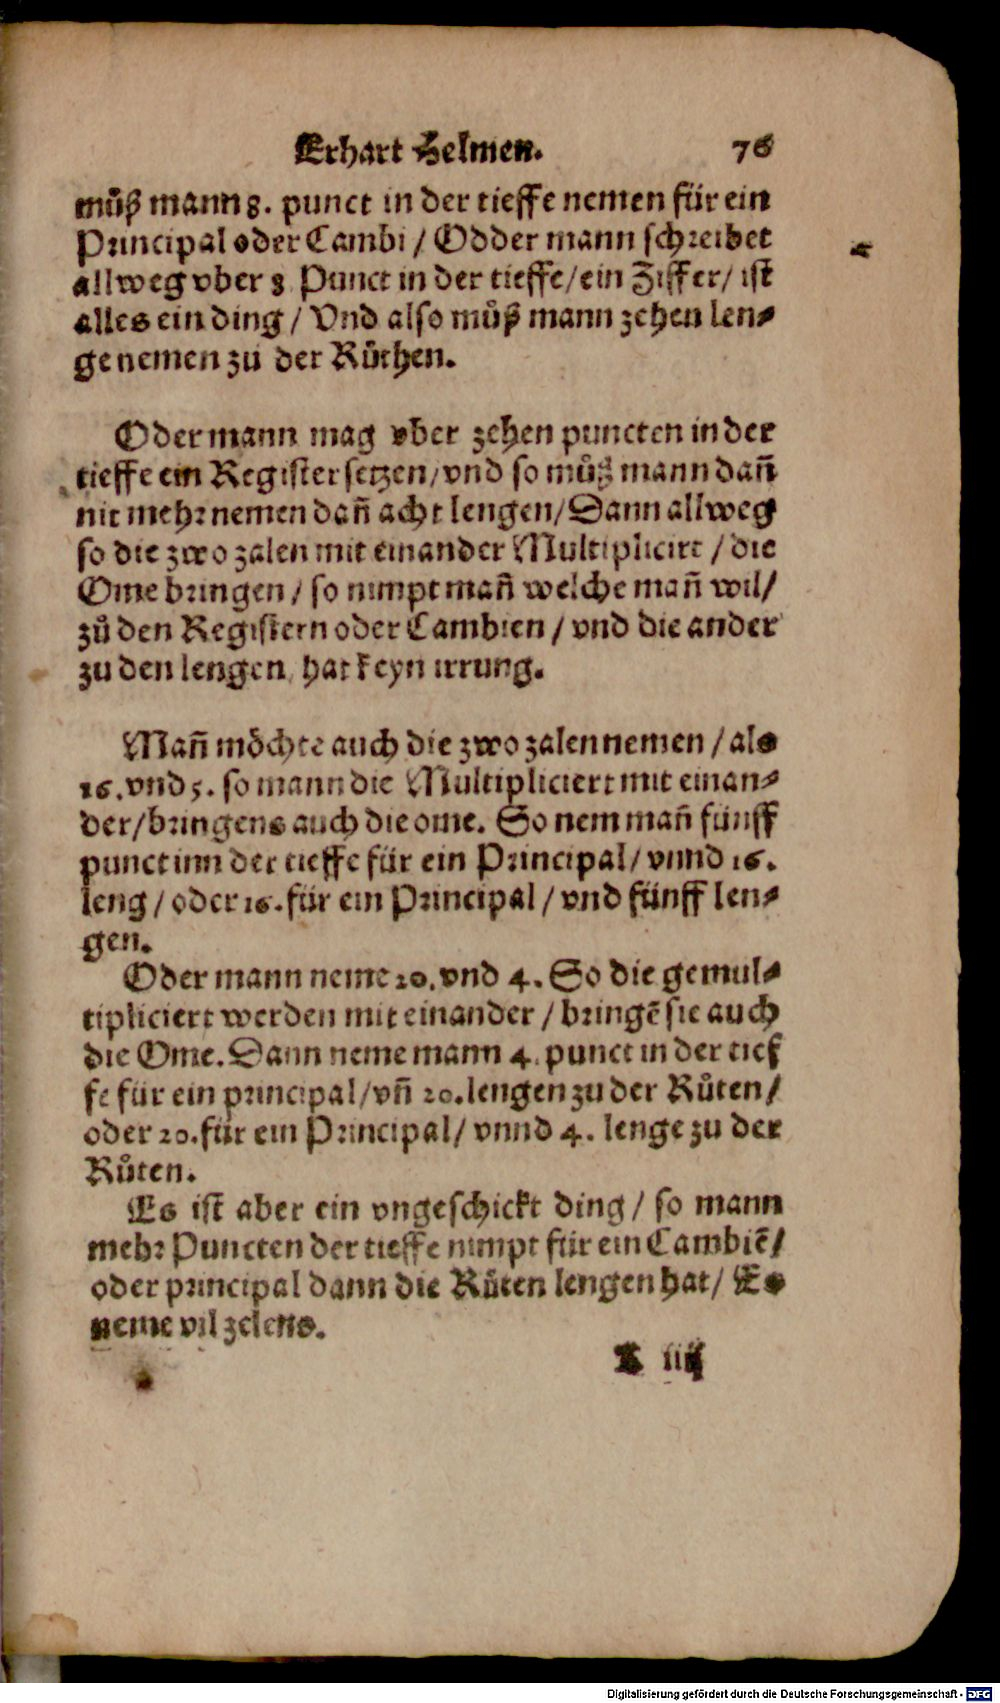 Erhart Helmen. 76
muͦß mann 8. punct in der tieffe nemen für ein
Principal oder Cambi / Odder mann schreibet
allweg vber 8 Punct in der tieffe / ein Ziffer / ist
alles ein ding / Vnd also muͦß mann zehen len⸗
ge nemen zu der Ruͦthen.
Oder mann mag vber zehen puncten in der
tieffe ein Register setzen / vnd so muͦß mann dañ
nit mehr nemen dañ acht lengen / Dann allweg
so die zwo zalen mit einander Multiplicirt / die
Ome bringen / so nimpt mañ welche mañ wil /
zuͦ den Registern oder Cambien / vnd die ander
zu den lengen / hat keyn irrung.
Mañ möchte auch die zwo zalen nemen / als
16. vnd 5. so mann die Multipliciert mit einan⸗
der / bringens auch die ome. So nem mañ fünff
punct inn der tieffe für ein Principal / vnnd 16.
leng / oder 16. für ein Principal / vnd fünff len⸗
gen.
Oder mann neme 20. vnd 4. So die gemul⸗
tipliciert werden mit einander / bringē sie auch
die Ome. Dann neme mann 4. punct in der tief
fe für ein principal / vñ 20. lengen zu der Ruͦten /
oder 20. für ein Principal / vnnd 4. lenge zu der
Ruͦten.
Es ist aber ein vngeschickt ding / so mann
mehr Puncten der tieffe nimpt für ein Cambiē /
oder principal dann die Ruͦten lengen hat / Es
neme vil zelens.
K iiij
Digitalisierung gefördert durch die Deutsche Forschungsgemeinschaft - DFG